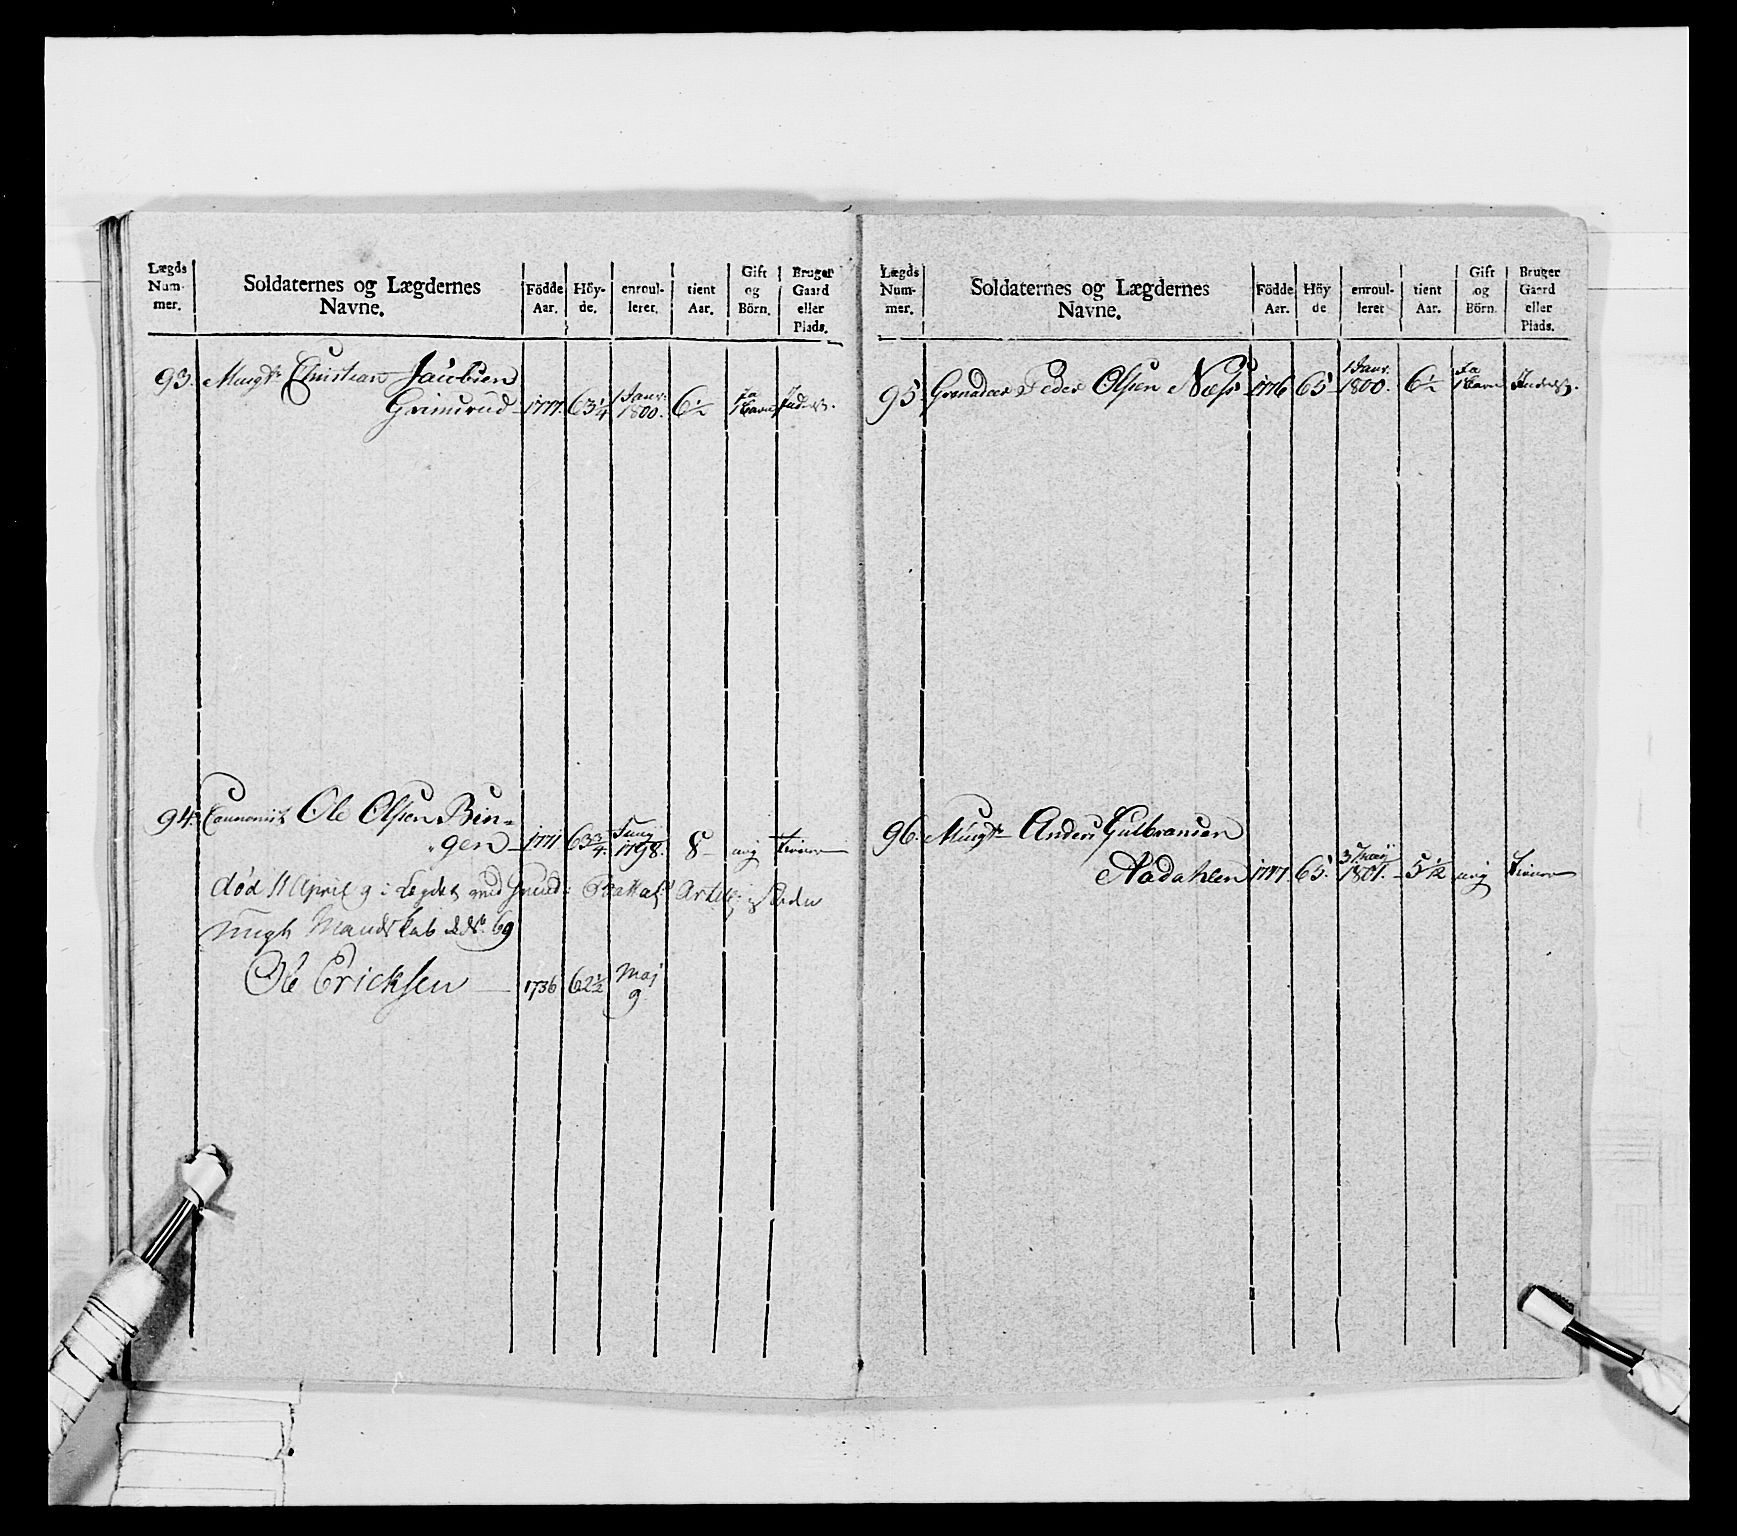 Lægds Num- mer.	Soldaternes og Lægdernes Navne.	Födde Aar.	Höy- de.	enroul- leret.	tient Aar.	Gift og Börn.	Bruger Gaard eller Plads.
93. Musqtr Christian Jacobsen
Grimsrud 1777. 63¼ 1 Janr. 1800. 6½ Ja 1 Barn Inderst.
94. Ole Olsen Bin=
gen 1771 63¾. Juny 1798. 8 ung Tienner
død 11 April 9 i Legdet
Mandskab 69
Ole Ericksen 1736 62½ Maj 9
Lægds Num- mer.	Soldaternes og Lægdernes Navne.	Födde Aar.	Höy de	enroul- leret	tient Aar.	Gift og Börn.	Bruger Gaard eller Plads.
95. Grenadeer Peder Olsen Næss 1776 65 1 Janr. 1800. 6½ Ja 1 Barn Inderst.
96. Musqtr Anders Gulbransen
Aadahlen 1777. 65. 1801. 5½ ung Tienner